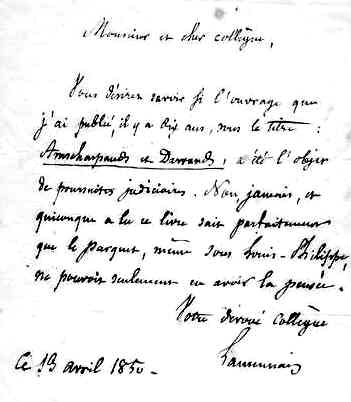 Monsieur et cher collègue,
Vous désirez savoir si l'ouvrage que
j'ai publié, il y a dix ans, sous le titre :
Amschaspands et Darvands, a été l'objet
de poursuites judiciaires. Non jamais, et
quiconque a lu ce livre sait parfaitement
que le parquet, même sous Louis-Philippe,
ne pouvoit seulement en avoir la pensée.
Votre dévoué collègue
Lamennais
Ce 13 avril 1850 -